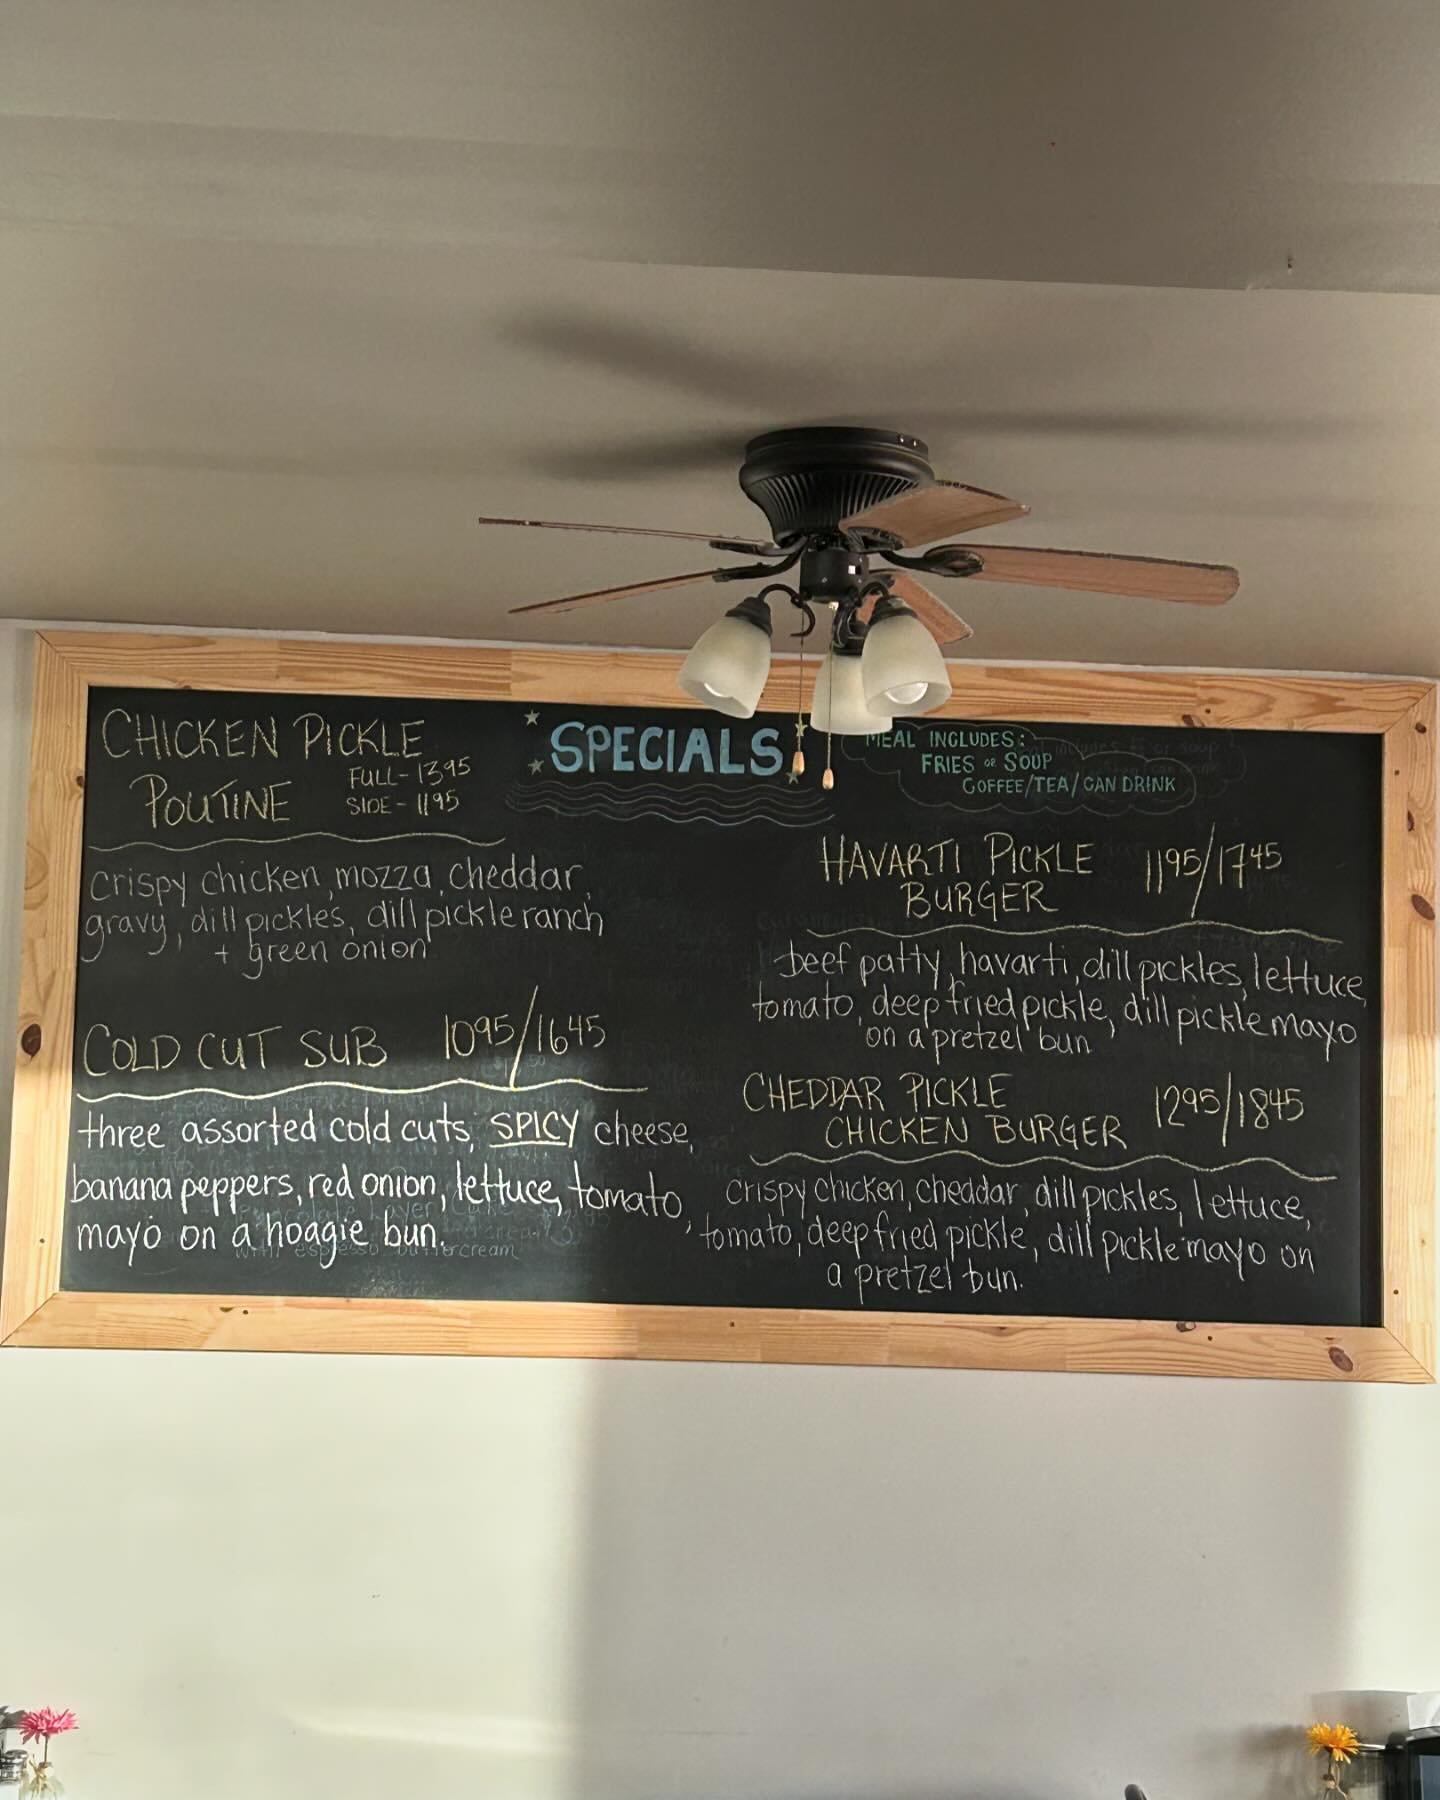 CHICKEN PICKLE
POUTINE
FULL - 1395
SIDE - 1195
crispy chicken, mozza, cheddar,
gravy, dill pickles, dill pickle ranch
+ green onion
COLD CUT SUB 1095/1645
three assorted cold cuts, SPICY cheese,
banana peppers, red onion, lettuce, tomato,
mayo on a hoagie bun.
with espresso buttercream
SPECIALS
MEAL INCLUDES:
FRIES OR SOUP
COFFEE/TEA/CAN DRINK
HAVARTI PICKLE 1195/1745
BURGER
beef patty, havarti, dill pickles, lettuce,
tomato, deep fried pickle, dill pickle mayo
on a pretzel bun
CHEDDAR PICKLE
CHICKEN BURGER 1295/1845
crispy chicken, cheddar, dill pickles, lettuce,
tomato, deep fried pickle, dill pickle mayo on
a pretzel bun.